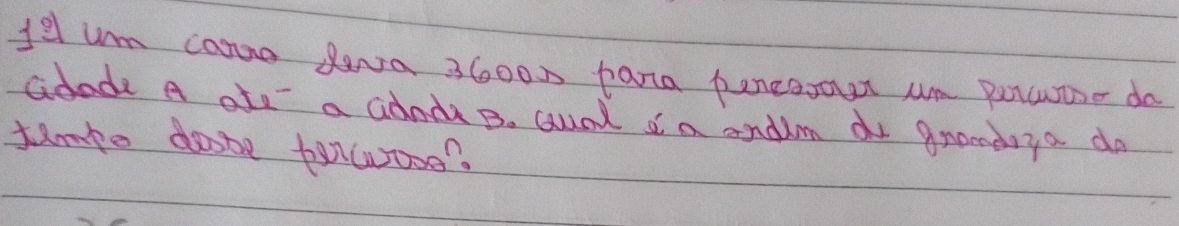 1º) um carro leva 3600s para percorrer um percurso da
cidade A até a cidade B. Qual é a ordem de grandeza do
tempo desse percurso?